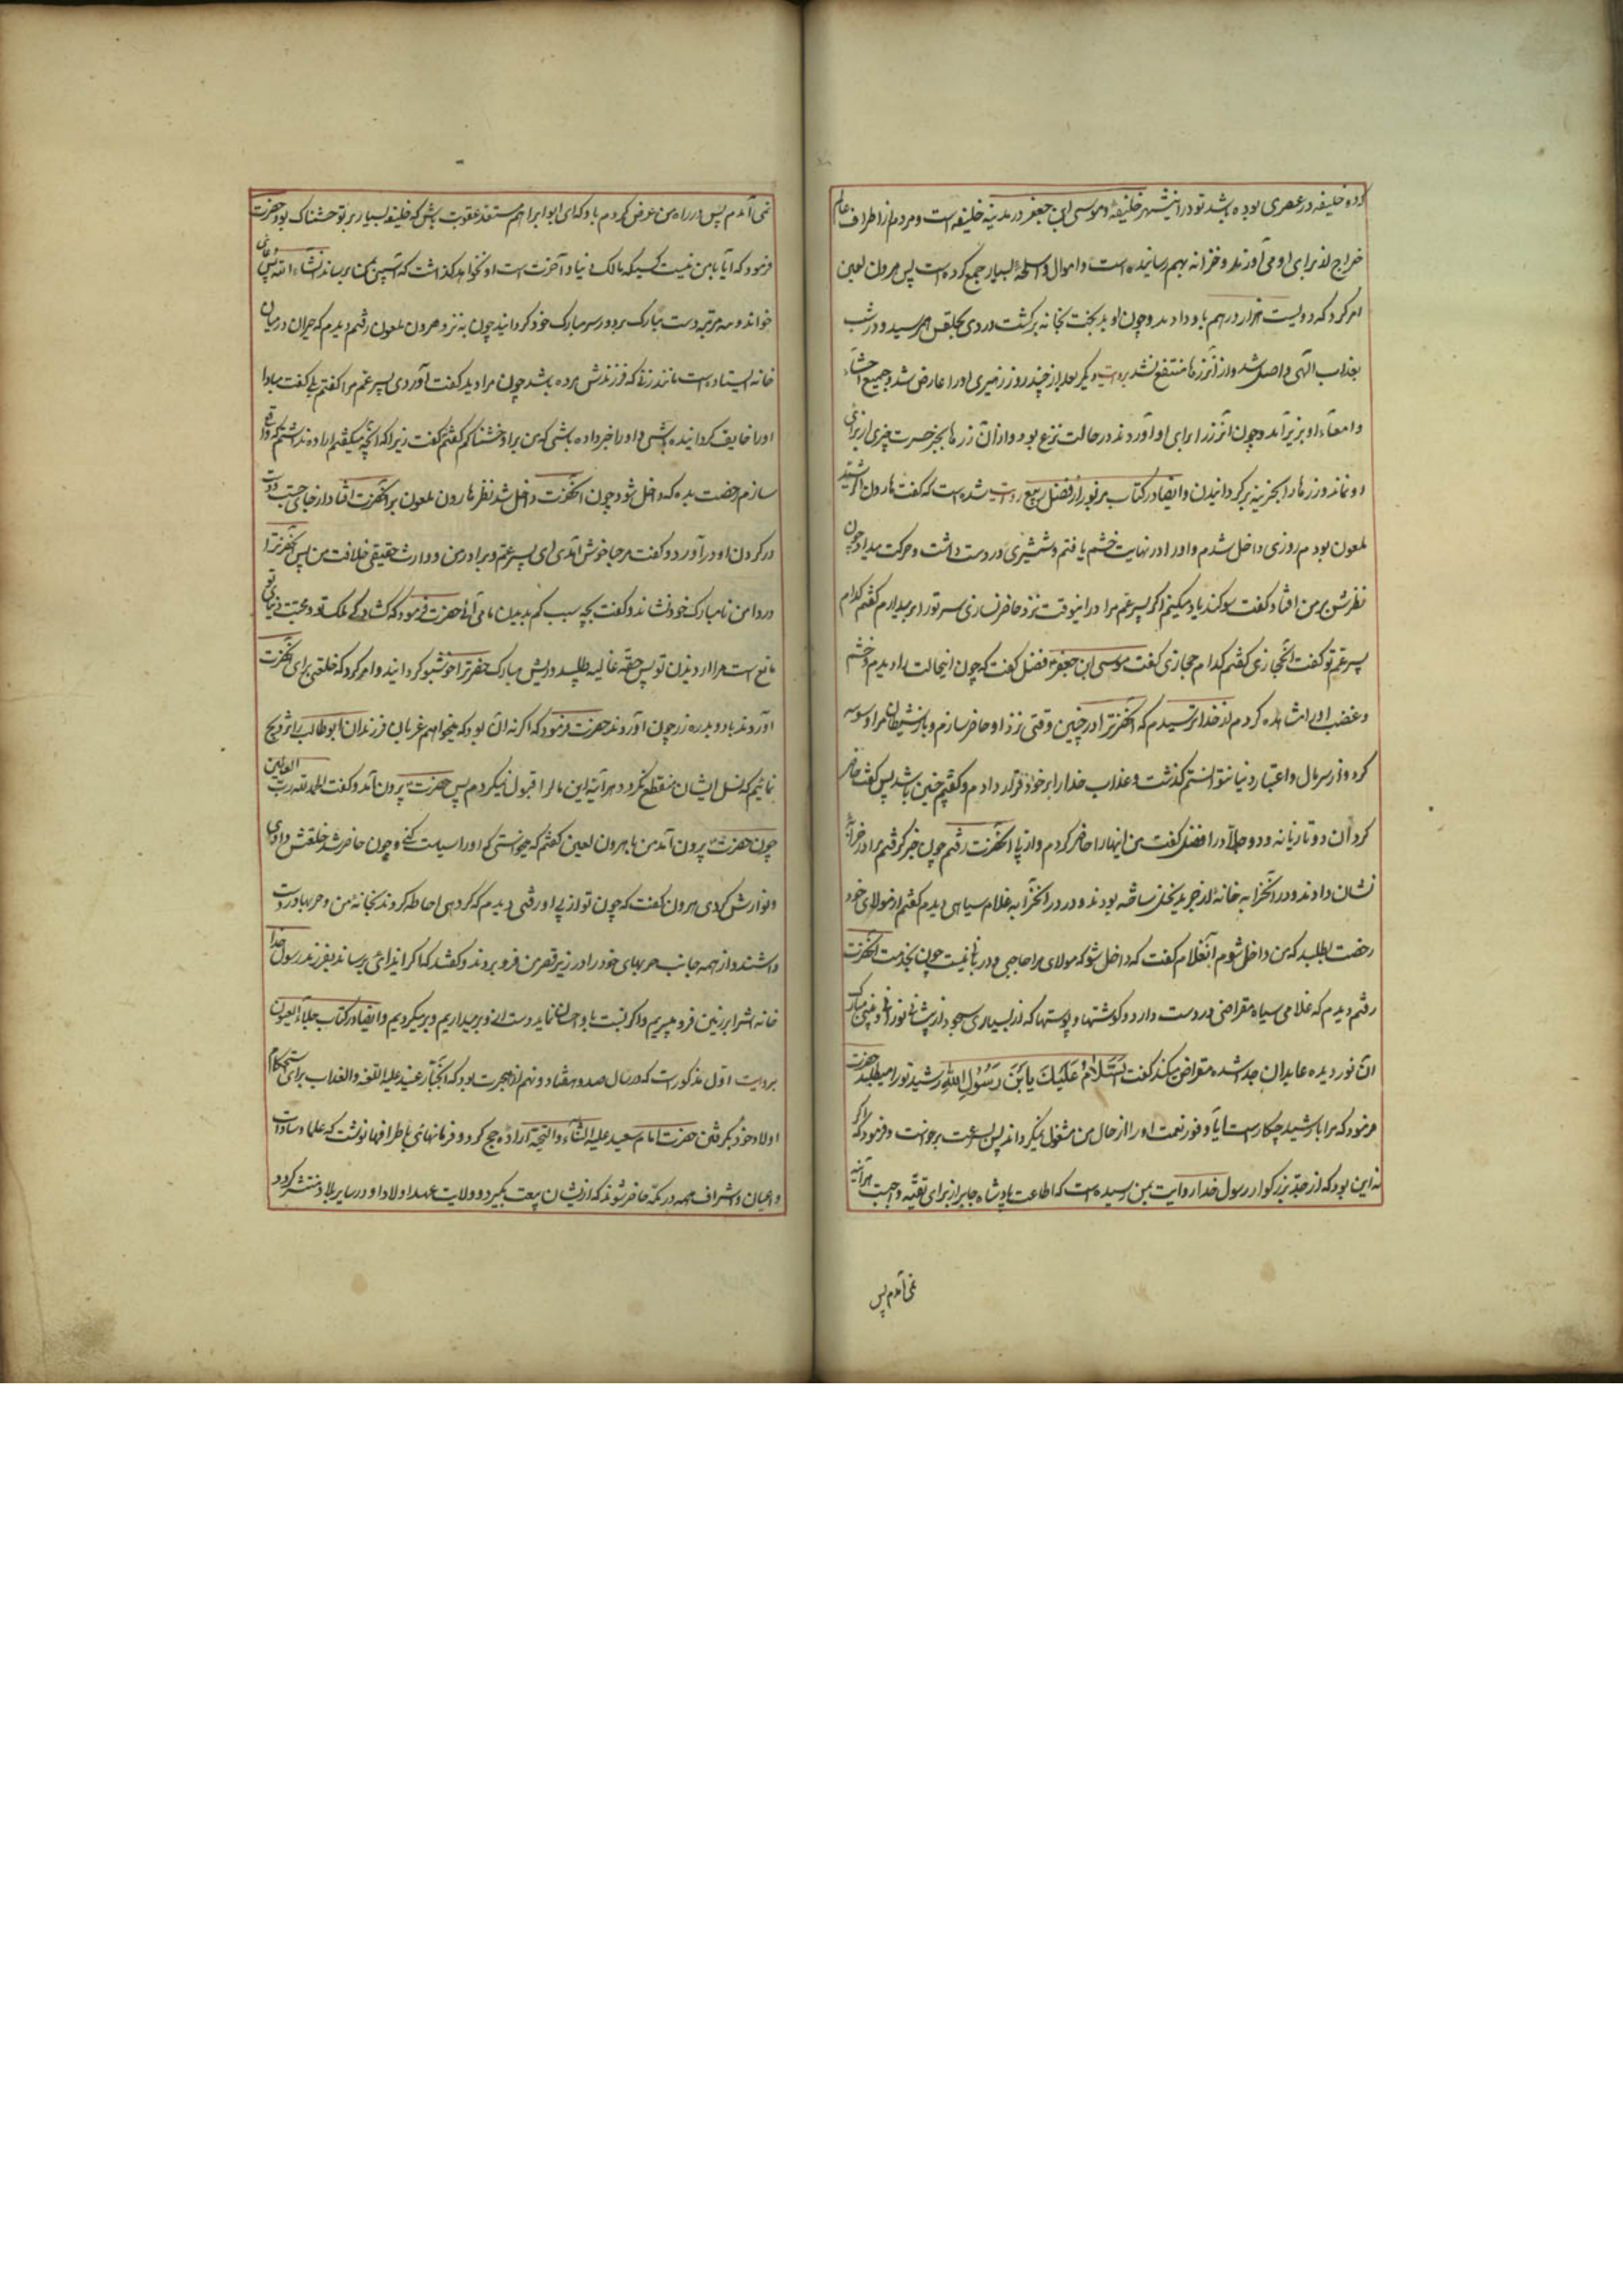 دو خلیفه در عصری بوده باشد تو در اینشهر خلیفهٔ و موسی ابن جعفر در مدینه خلیفه است و مردم از اطراف عالم
خراج از برای او می آورند و خزانه بهم رسانیده است و اموال و اسلحهٔ بسیار جمع کرده است پس هرون لعین
امر کرد که دویست هزار درهم باو دادند و چون او بدبخت بخانه برکشت دردی بحلقش بهم رسید و در شب
بعذاب الهی واصل شد و از آن زرها منتفع نشد بروایت دیکر بعد از چند روز زحیری اورا عارض شد و جمیع احشاء
و امعآء او بزیر آمد و چون آنزر را برای او آوردند در حالت نزع بود و از آن زرها بجز حسرت چیزی از برای
او نماند و زرها را بخزینه برکردانیدن و ایضا در کتاب مزبور از فضل ربیع روایت شده است که کفت هارون الرشید
ملعون بودم روزی داخل شدم و اورا در نهایت خشم یافتم و شمشیری در دست داشت و حرکت میداد چون
نظرش بر من افتاد کفت سوکند یاد میکنم اکر پسر عم مرا در اینوقت نزد من حاضر نسازی سر تورا بر میدارم کفتم کدام
پسر عم تو کفت آنحجازی کفتم کدام حجازی کفت موسی ابن جعفر فضل کفت که چون اینحالت را دیدم و خشم
و غضب اورا مشاهده کردم از خدا ترسیدم که آنحضرترا در چنین وقتی نزد او حاضر سازم و باز شیطان مرا وسوسه
کرد و از سر مال و اعتبار دنیا نتوانستم کذشت و عذاب خدا را بر خود قرار دادم و کفتم چنین باشد پس کفت حاضر
کردان دو تازیانه و دو جلاد را فضل کفت من اینهارا حاضر کردم و از پی آنحضرت رفتم چون خبر کرفتم مرا در خرابه
نشان دادند و در آنخرابه خانهٔ از جرید نخل ساخته بودند و در در آنخرابه غلام سیاهی دیدم کفتم از مولای خود
رخصت بطلب که من داخل شوم آنغلام کفت که داخل شو که مولای مرا حاجبی و دربانی نیست چون بخدمت آنحضرت
رفتم دیدم که غلامی سیاه مقراضی در دست دارد و کوشتها و پوستها که از بسیاری سجود از پیشانی نورانی و بینی مبارک
آن نور دیده عابدان جدا شده مقراض میکند کفت السَّلَامُ عَلَیْكَ یَا بْنَ رَسُولِ اللهِ رشید تورا میطلبد حضرت
فرمود که مرا با رشید چکار است آیا وفور نعمت اورا از حال من مشغول نمیکرداند پس بسرعت برخواست و فرمود که اکر
نه این بود که از جد بزرکوار رسول خدا روایت بمن رسیده است که اطاعت پادشاه جابر از برای تقیّه واجبست هرآینه
نمی آمدم پس
نمی آمدم پس در راه من عرض کردم باو که ای ابو ابراهیم مستعد عقوبت باش که خلیفه بسیار بر تو خشمناک بود حضرت
فرمود که آیا با من نیست کسیکه مالک دنیا و آخرت است او نخواهد کذاشت که آسیبی بمن برساند انشآء الله پس دعائی
خواند و سه مرتبه دست مبارک بر دور سر مبارک خود کردانید چون به نزد هرون ملعون رفتم دیدم که حیران در میان
خانه ایستاده است مانند زنی که فرزندش مرده باشد چون مرا دید کفت آوردی پسر عم مرا کفتم بلی کفت مبادا
اورا خایف کردانیده باشی و اورا خبر داده باشی که من بر او خشمناکم کفتم کفت زیرا که آنچه میکفتم اراده نداشتم که واقع
سازم رخصت بده که داخل شود چون آنحضرت داخل شد نظر هارون ملعون بر آنحضرت افتاد از جای جست و دست
در کردن او درآورد و کفت مرحبا خوش آمدی ای پسر عم و برادر من و وارث حقیقی خلافت من پس آنحضرترا
در دامن نامبارک خود نشاند و کفت بچه سبب کم بدیدن ما می آئی حضرت فرمود که کشادکی ملک تو و محبت دنیای تو
مانع است مرا از دیدن تو پس حقهٔ غالیه طلبید و ریش مبارک حضرترا خوشبو کردانید و امر کرد که خلعتی برای آنحضرت
آوردند با دو بدره زر چون آوردند حضرت فرمود که اکر نه آن بود که میخواهم عزبان فرزندان ابوطالب را تزویج
نمائیم که نسل ایشان منقطع نکردد هرآینه این مال را قبول نمیکردم پس حضرت بیرون آمد و کفت الحمد لله رب العالمین
چون حضرت بیرون آمد من با هرون لعین کفتم که میخواستی که اورا سیاست کنی و چون حاضر شد خلعتش دادی
و نوازش کردی هرون کفت که چون تو از پی او رفتی دیدم که کروهی احاطه کردند بخانهٔ من و حربها در دست
داشتند و از همه جانب حربهای خود را در زیر قصر من فرو بردند و کفتند که اکر ایذائی برساند بفرزند رسول خدا
خانه اشرا بر زمین فرو میبریم و اکر نسبت باو احسان نماید دست از او بر میداریم و بر میکردیم و ایضا در کتاب جلاء العیون
بروایت اول مذکور است که در سال صد و هفتاد و نهم از هجرت بود که آنجبّار عنید علیه اللعنه و العذاب برای استحکام
اولاد خود بکرفتن حضرت امام سعید علیه الثنآء و التحیّه اراده حج کرد و فرمانهائی باطرافها نوشت که علما و سادات
و اعیان و اشراف همه در مکه حاضر شوند که از ایشان بیعت بکیرد و ولایت عهد اولاد او در سایر بلاد منتشر کردد